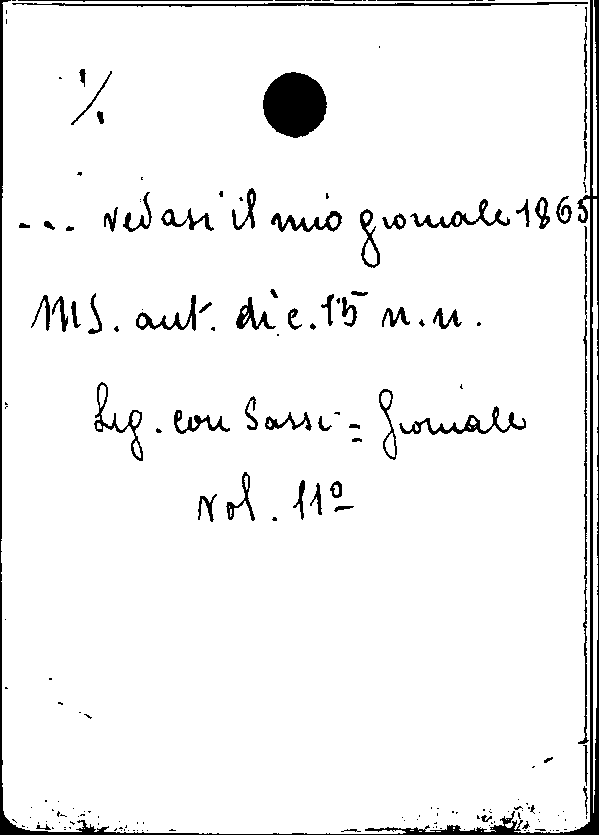 ./.
... vedasi il mio giornale 1865
MS. aut. di c. 15 n.n.
Leg. con Sassi = Giornale
vol. 11º